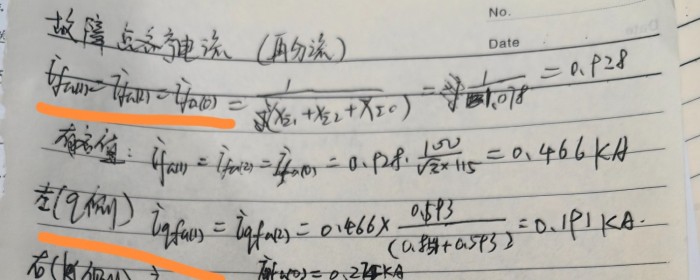 No.
Date
故障点各序电流（再分流）
İfa(1) = İfa(2) = İfa(0) = 1/j(XΣ1+XΣ2+XΣ0) = 1/1.078 = 0.928
有名值: İfa(1) = İfa(2) = İfa(0) = 0.928·100/√2×115 = 0.466KA
左(q侧) İqfa(1) = İqfa(2) = 0.466× 0.593/(+0.593) = 0.191KA.
右( = 0.27KA